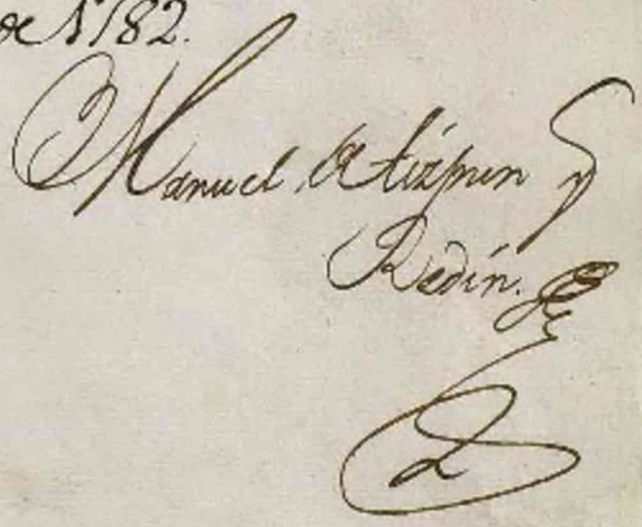 de 1782.
Manuel de Aizpun y
Redín.